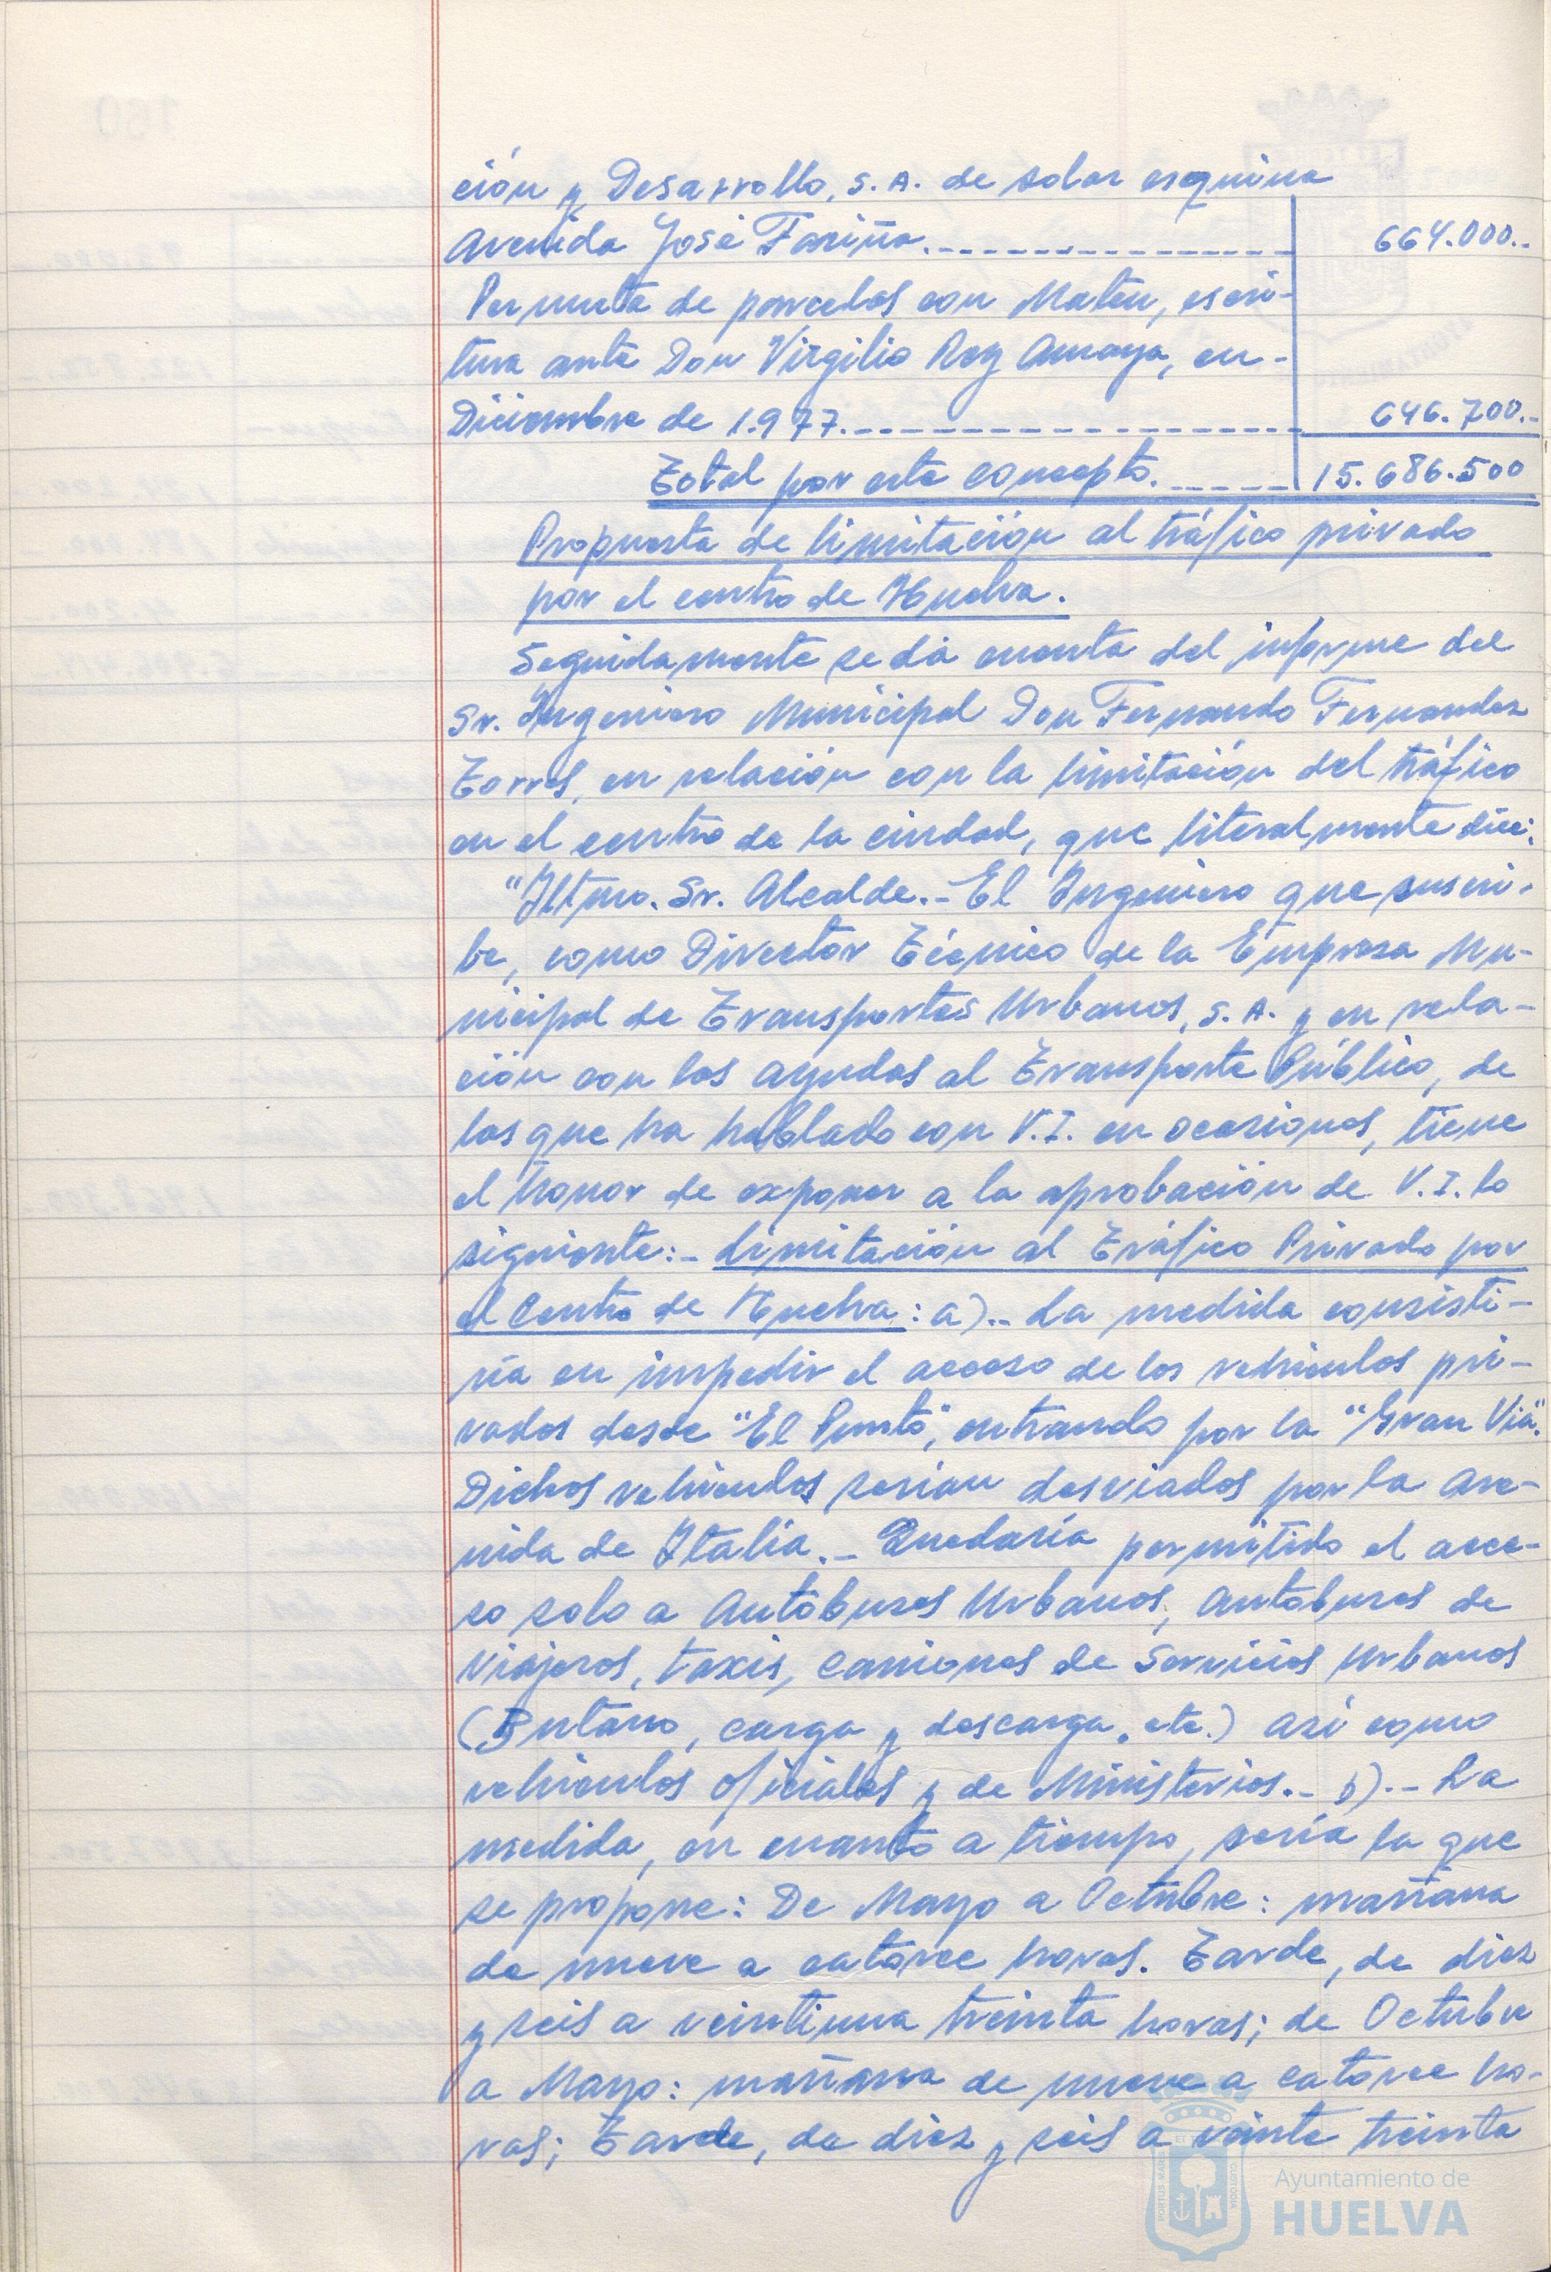 ción y Desarrollo, S.A. de solar esquina
Avenida José Fariña.---------------- 664.000.-
Permuta de parcelas con Mateu, escri-
tura ante Don Virgilio Rey Amaya, en-
Diciembre de 1.977.-------------------- 646.700.-
Total por este concepto.------ 15.686.500
Propuesta de limitación al tráfico privado
por el centro de Huelva.
Seguidamente se dá cuenta del informe del
Sr. Ingeniero Municipal Don Fernando Fernandez
Torres, en relación con la limitación del tráfico
en el centro de la ciudad, que literalmente dice:
"Iltmo. Sr. Alcalde.- El Ingeniero que suscri-
be, como Director Técnico de la Empresa Mu-
nicipal de Transportes Urbanos, S.A. y en rela-
ción con las ayudas al Transporte Público, de
las que ha hablado con V.I. en ocasiones, tiene
el honor de exponer a la aprobación de V.I. lo
siguiente:- Limitación al Tráfico Privado por
el Centro de Huelva: a).- La medida consisti-
ría en impedir el acceso de los vehiculos pri-
vados desde "El Punto", entrando por la "Gran Via".
Dichos vehiculos serían desviados por la Ave-
nida de Italia.- Quedaría permitido el acce-
so solo a Autobuses Urbanos, Autobuses de
Viajeros, taxis, Camiones de Servicios Urbanos
(Butano, carga y descarga, etc.) así como
vehiculos oficiales y de Ministerios.- b).- La
medida, en cuanto a tiempo, sería la que
se propone: De Mayo a Octubre: mañana
de nueve a catorce horas. Tarde, de diez
y seis a veintiuna treinta horas; de Octubre
a Mayo: mañana de nueve a catorce ho-
ras; Tarde, de diez y seis a veinte treinta
Ayuntamiento de
HUELVA